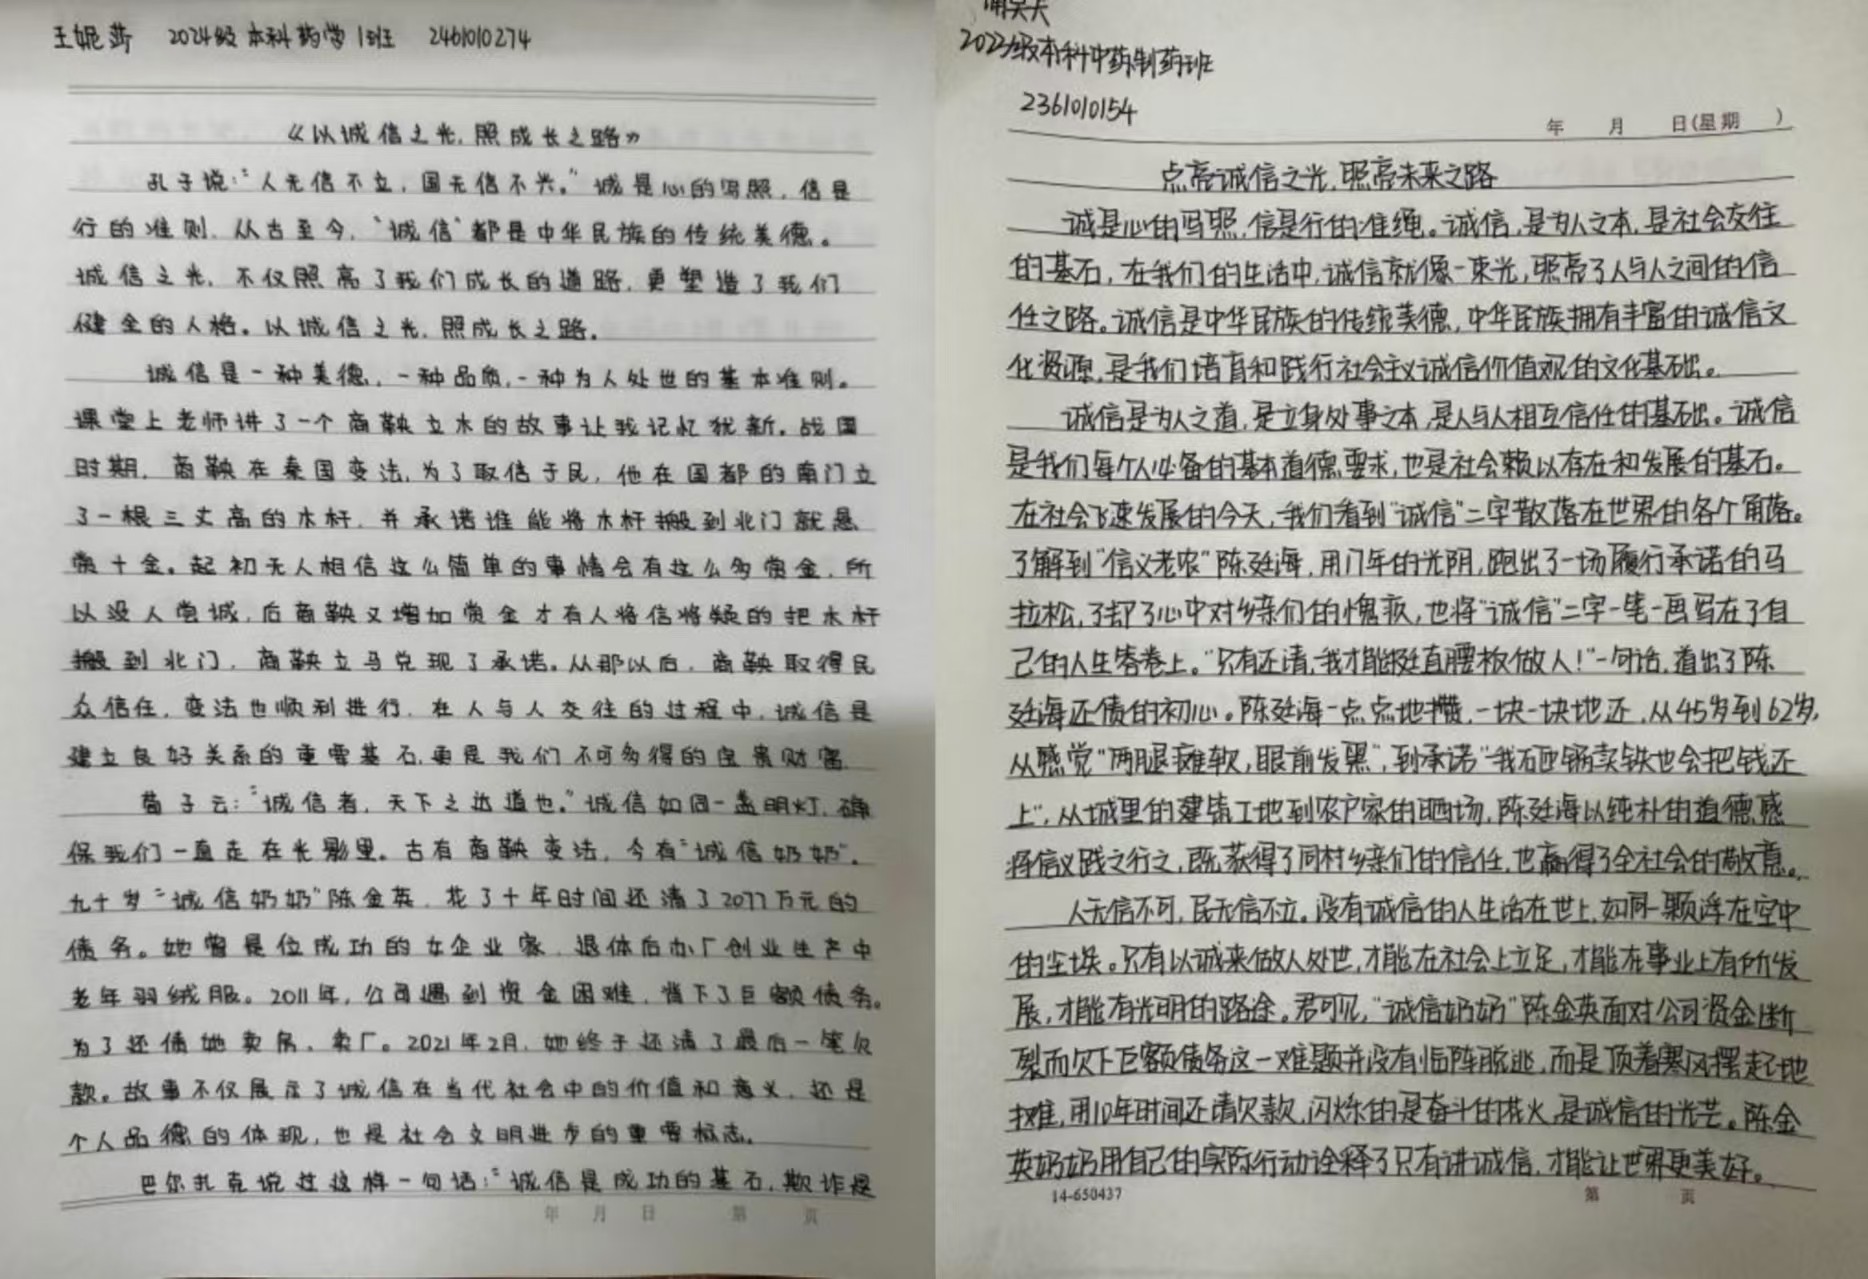 王妮莎 2024级本科药学1班 2461010274
《以诚信之光,照成长之路》
孔子说:“人无信不立,国无信不兴。”诚是心的写照,信是
行的准则,从古至今,“诚信”都是中华民族的传统美德。
诚信之光,不仅照亮了我们成长的道路,更塑造了我们
健全的人格。以诚信之光,照成长之路。
诚信是一种美德,一种品质,一种为人处世的基本准则。
课堂上老师讲了一个商鞅立木的故事让我记忆犹新。战国
时期,商鞅在秦国变法,为了取信于民,他在国都的南门立
了一根三丈高的木杆,并承诺谁能将木杆搬到北门就悬
赏十金。起初无人相信这么简单的事情会有这么多赏金,所
以没人尝诚,后商鞅又增加赏金才有人将信将疑的把木杆
搬到北门,商鞅立马兑现了承诺。从那以后,商鞅取得民
众信任,变法也顺利进行,在人与人交往的过程中,诚信是
建立良好关系的重要基石,更是我们不可多得的宝贵财富
荀子云:“诚信者,天下之达道也。”诚信如同一盏明灯,确
保我们一直走在光影里。古有商鞅变法,今有“诚信奶奶”。
九十岁“诚信奶奶”陈金英,花了十年时间还清了2077万元的
债务。她曾是位成功的女企业家,退休后办厂创业生产中
老年羽绒服。2011年,公司遇到资金困难,背下了巨额债务。
为了还债她卖房、卖厂。2021年2月,她终于还清了最后一笔欠
款。故事不仅展示了诚信在当代社会中的价值和意义,还是
个人品德的体现,也是社会文明进步的重要标志。
巴尔扎克说过这样一句话:“诚信是成功的基石,欺诈是
年 月 日 第 页
2023级本科中药制药班
2361010154
年 月 日(星期 )
点亮诚信之光,照亮未来之路
诚是心的写照,信是行的准绳。诚信,是为人之本,是社会交往
的基石,在我们的生活中,诚信就像一束光,照亮了人与人之间的信
任之路。诚信是中华民族的传统美德,中华民族拥有丰富的诚信文
化资源,是我们培育和践行社会主义诚信价值观的文化基础。
诚信是为人之道,是立身处事之本,是人与人相互信任的基础。诚信
是我们每个人必备的基本道德要求,也是社会赖以存在和发展的基石。
在社会飞速发展的今天,我们看到“诚信”二字散落在世界的各个角落。
了解到“信义老农”陈廷海,用17年的光阴,跑出了一场履行承诺的马
拉松,了却了心中对乡亲们的愧疚,也将“诚信”二字一笔一画写在了自
己的人生答卷上。“只有还清,我才能挺直腰板做人!”一句话,道出了陈
廷海还债的初心。陈廷海一点点地攒,一块一块地还,从45岁到62岁,
从感觉“两腿瘫软,眼前发黑”,到承诺“我砸锅卖铁也会把钱还
上”,从城里的建筑工地到农户家的晒场,陈廷海以纯朴的道德感
将信义践之行之,既获得了同村乡亲们的信任,也赢得了全社会的敬意。
人无信不可,民无信不立。没有诚信的人生活在世上,如同一颗浮在空中
的尘埃。只有以诚来做人处世,才能在社会上立足,才能在事业上有所发
展,才能有光明的路途。君可见,“诚信奶奶”陈金英面对公司资金断
裂而欠下巨额债务这一难题并没有临阵脱逃,而是顶着寒风摆起地
摊,用10年时间还清欠款,闪烁的是奋斗的花火,是诚信的光芒。陈金
英奶奶用自己的实际行动诠释了只有讲诚信,才能让世界更美好。
14-650437 第 页